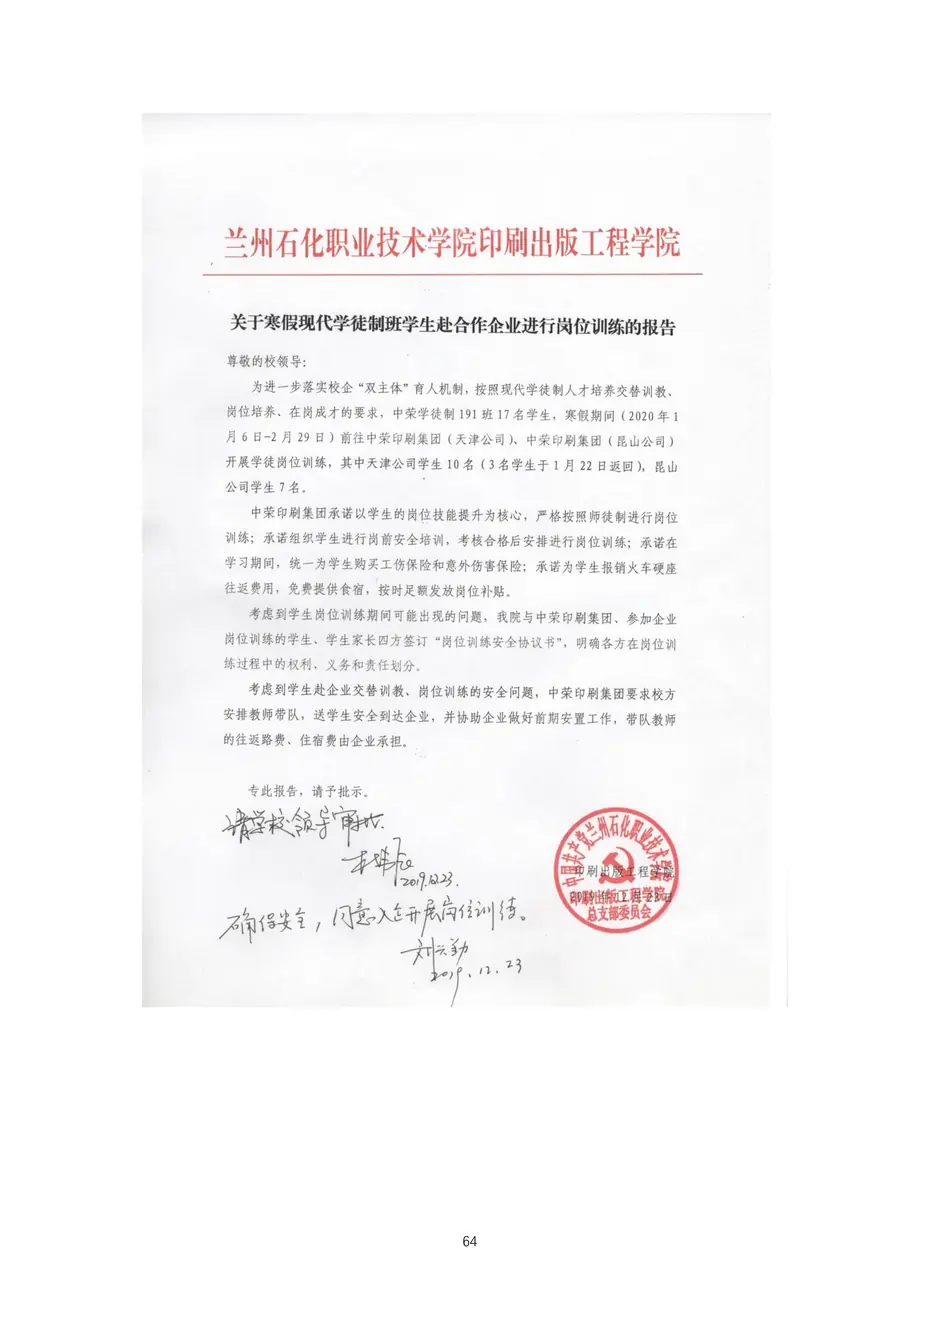 兰州石化职业技术学院印刷出版工程学院
关于寒假现代学徒制班学生赴合作企业进行岗位训练的报告
尊敬的校领导：
为进一步落实校企“双主体”育人机制，按照现代学徒制人才培养交替训教、
岗位培养、在岗成才的要求，中荣学徒制191班17名学生，寒假期间（2020年1
月6日-2月29日）前往中荣印刷集团（天津公司）、中荣印刷集团（昆山公司）
开展学徒岗位训练，其中天津公司学生10名（3名学生于1月22日返回），昆山
公司学生7名。
中荣印刷集团承诺以学生的岗位技能提升为核心，严格按照师徒制进行岗位
训练；承诺组织学生进行岗前安全培训，考核合格后安排进行岗位训练；承诺在
学习期间，统一为学生购买工伤保险和意外伤害保险；承诺为学生报销火车硬座
往返费用，免费提供食宿，按时足额发放岗位补贴。
考虑到学生岗位训练期间可能出现的问题，我院与中荣印刷集团、参加企业
岗位训练的学生、学生家长四方签订“岗位训练安全协议书”，明确各方在岗位训
练过程中的权利、义务和责任划分。
考虑到学生赴企业交替训教、岗位训练的安全问题，中荣印刷集团要求校方
安排教师带队，送学生安全到达企业，并协助企业做好前期安置工作，带队教师
的往返路费、住宿费由企业承担。
专此报告，请予批示。
请学校领导审批.
2019.12.23.
中国共产党兰州石化职业技术学院
印刷出版工程学院
2019年12月23日
印刷出版工程学院
总支部委员会
确保安全，同意入企开展岗位训练。
刘兴勤
2019.12.23
64